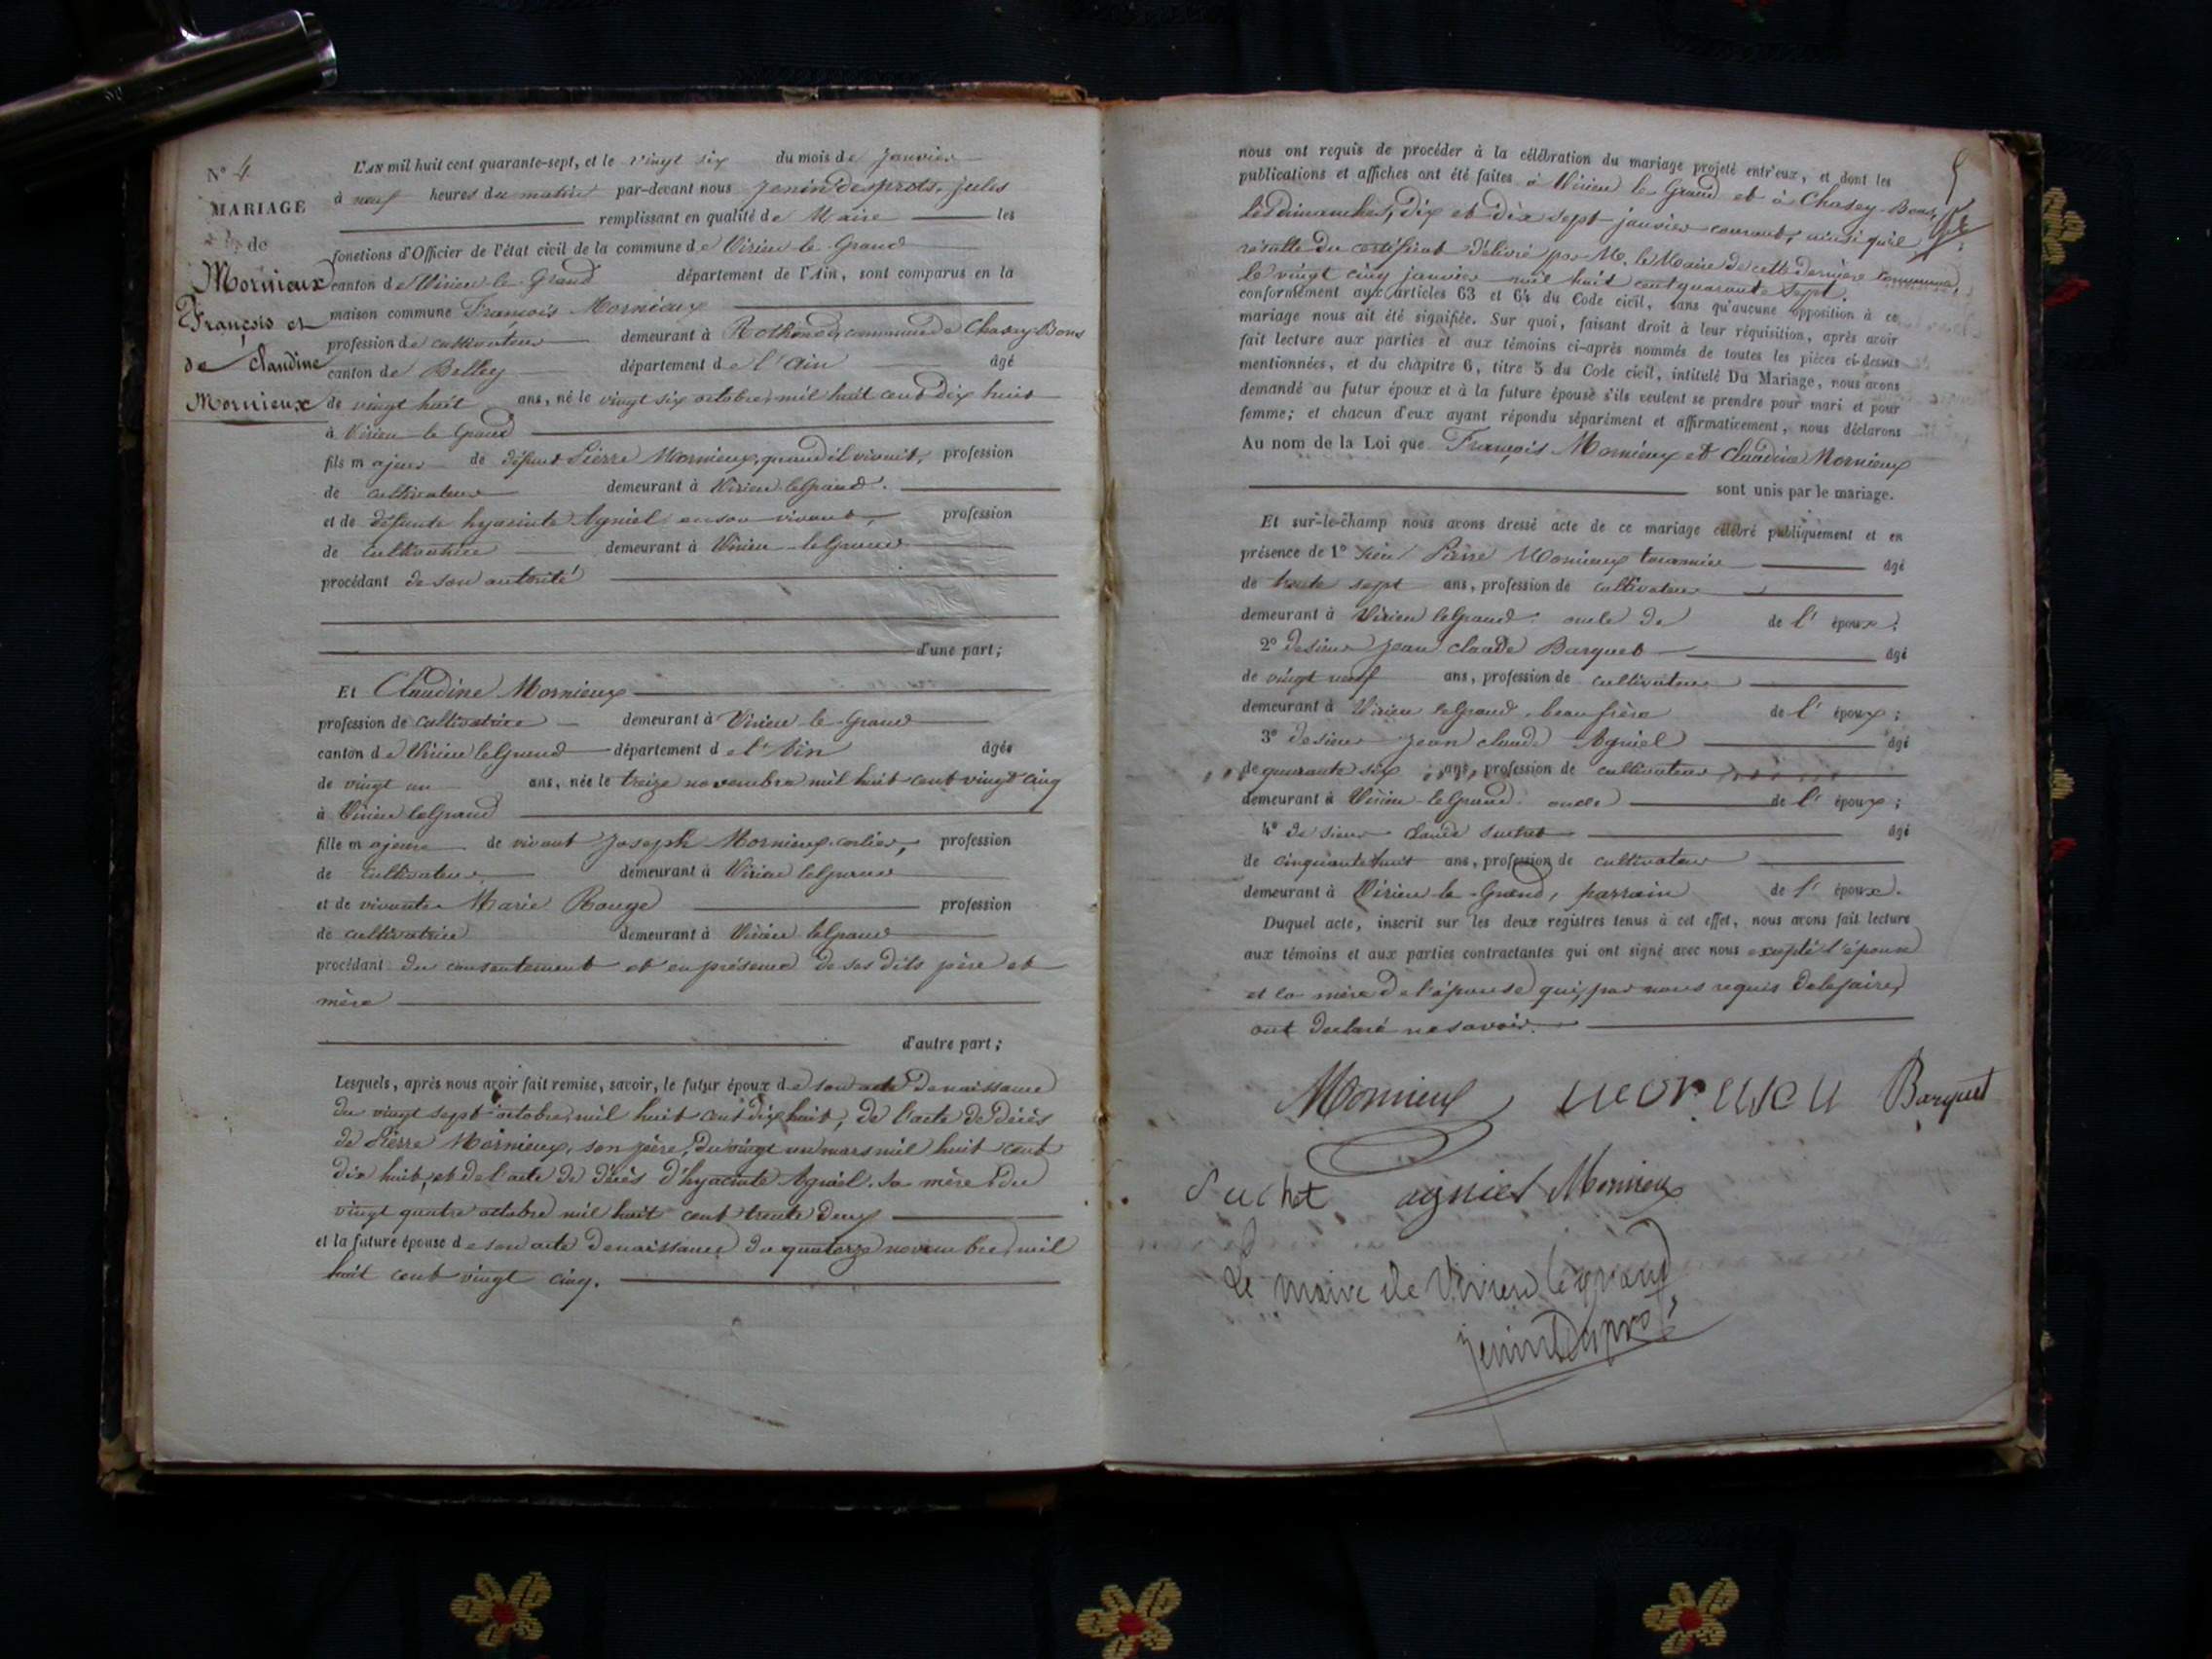 N° 4
MARIAGE
de
Mornieux
François et
de Claudine
Mornieux
L'AN mil huit cent quarante-sept, et le vingt six du mois de janvier
à neuf heures du matin par-devant nous Jenin Desprots, jules
remplissant en qualité de Maire les
fonctions d'Officier de l'état civil de la commune de Virieu le Grand
canton de Virieu le Grand département de l'Ain, sont comparus en la
maison commune François Mornieux
profession de cultivateur demeurant à Rothonod, commune de Chasey-Bons
canton de Belley département de l'Ain âgé
de vingt huit ans, né le vingt six octobre mil huit cent dix huit
à Virieu le Grand
fils majeur de défunt Pierre Mornieux, quand il vivait, profession
de cultivateur demeurant à Virieu le Grand.
et de défunte hyacinte Agniel en son vivant, profession
de cultivatrice demeurant à Virieu le Grand
procédant de son autorité
d'une part;
Et Claudine Mornieux
profession de cultivatrice demeurant à Virieu le Grand
canton de Virieu le Grand département de l'Ain âgée
de vingt un ans, née le treize novembre mil huit cent vingt cinq
à Virieu le Grand
fille majeure de vivant Joseph Mornieux, profession
de cultivateur demeurant à Virieu le Grand
et de vivante Marie Rouge profession
de cultivatrice demeurant à Virieu le Grand
procédant du consentement et en présence de ses dits père et
mère
d'autre part;
Lesquels, après nous avoir fait remise, savoir, le futur époux de son acte de naissance
du vingt sept octobre mil huit cent dix huit, de l'acte de décès
de Pierre Mornieux, son père, du vingt un mars mil huit cent
dix huit, et de l'acte de décès d'hyacinte Agniel, sa mère du
vingt quatre octobre mil huit cent trente deux
et la future épouse de son acte de naissance du quatorze novembre mil
huit cent vingt cinq.
5
nous ont requis de procéder à la célébration du mariage projeté entr'eux, et dont les
publications et affiches ont été faites à Virieu le Grand et à Chasey Bons,
les dimanches, dix et dix sept janvier courant, ainsi qu'il
résulte du certificat délivré par M. le Maire de cette dernière commune,
le vingt cinq janvier mil huit cent quarante sept.
conformément aux articles 63 et 64 du Code civil, sans qu'aucune opposition à ce
mariage nous ait été signifiée. Sur quoi, faisant droit à leur réquisition, après avoir
fait lecture aux parties et aux témoins ci-après nommés de toutes les pièces ci-dessus
mentionnées, et du chapitre 6, titre 5 du Code civil, intitulé Du Mariage, nous avons
demandé au futur époux et à la future épouse s'ils veulent se prendre pour mari et pour
femme; et chacun d'eux ayant répondu séparément et affirmativement, nous déclarons
Au nom de la Loi que François Mornieux et Claudine Mornieux
sont unis par le mariage.
Et sur-le-champ nous avons dressé acte de ce mariage célébré publiquement et en
présence de 1° sieur Pierre Mornieux tournier âgé
de trente sept ans, profession de cultivateur
demeurant à Virieu le Grand oncle de de l'épouse;
2° de sieur Jean Claude Barquet âgé
de vingt neuf ans, profession de cultivateur
demeurant à Virieu le Grand, beau frère de l'époux;
3° de sieur Jean Claude Agniel âgé
de quarante six ans, profession de cultivateur
demeurant à Virieu le Grand oncle de l'époux;
4° de sieur Claude Suchet âgé
de cinquante huit ans, profession de cultivateur
demeurant à Virieu le Grand, parrain de l'épouse.
Duquel acte, inscrit sur les deux registres tenus à cet effet, nous avons fait lecture
aux témoins et aux parties contractantes qui ont signé avec nous excepté l'épouse
et la mère de l'épouse qui, par nous requis de le faire,
ont déclaré ne savoir.
Mornieux Barquet
Suchet agniel Mornieux
Le maire de Virieu le grand